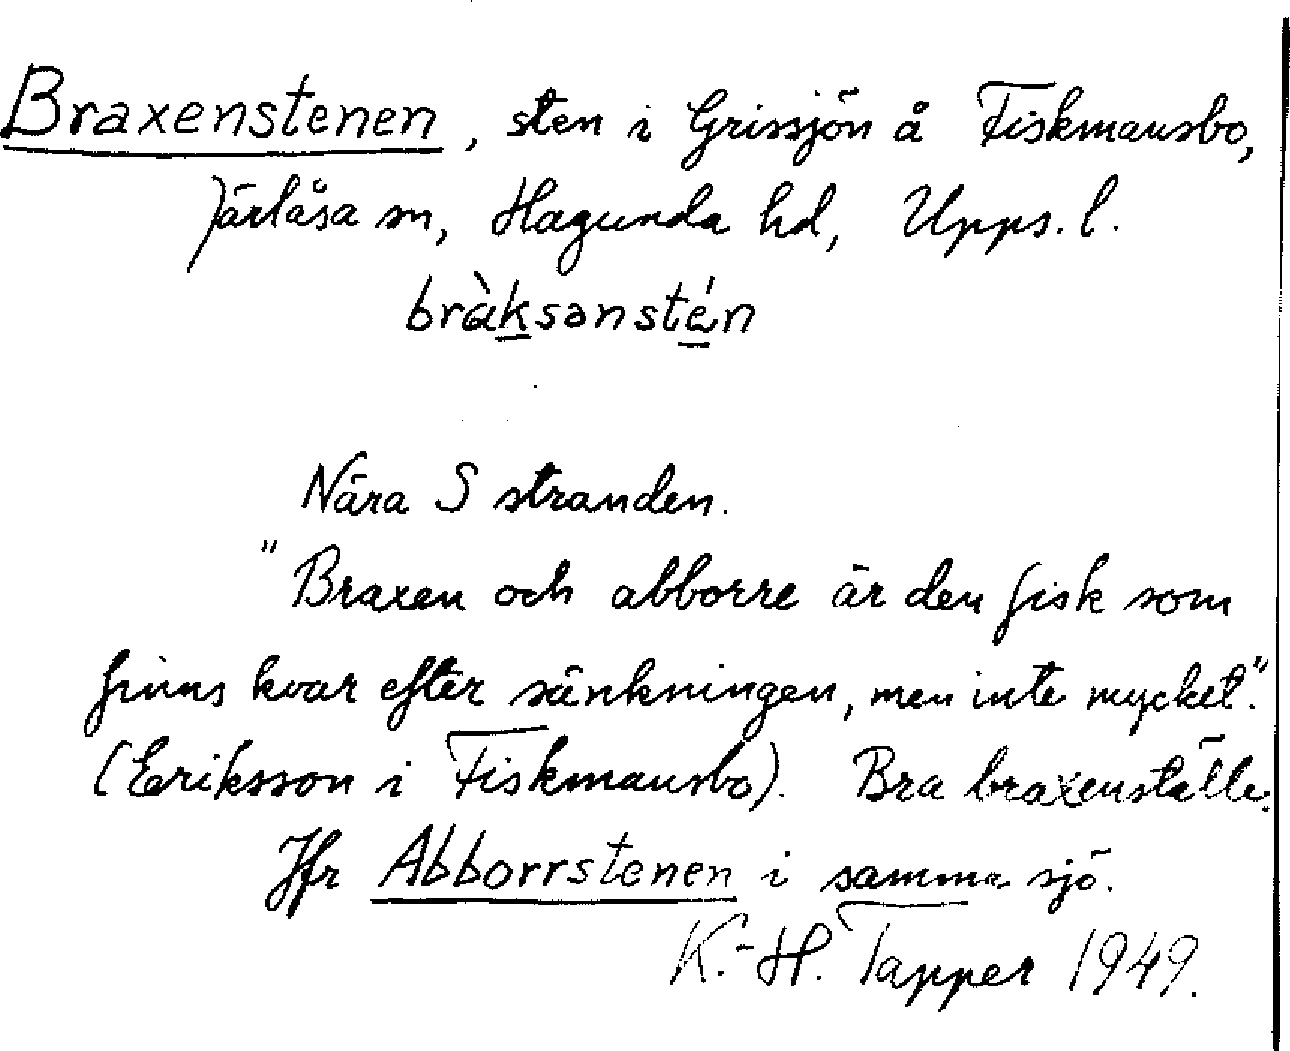 Braxenstenen, sten i Grissjön å Fiskmansbo,
Järlåsa sn, Hagunda hd, Upps. l.
bràksənstén
Nära S stranden.
"Braxen och abborre är den fisk som
finns kvar efter sänkningen, men inte mycket."
(Eriksson i Fiskmansbo). Bra braxenställe.
Jfr Abborrstenen i samma sjö.
K.-H. Tapper 1949.